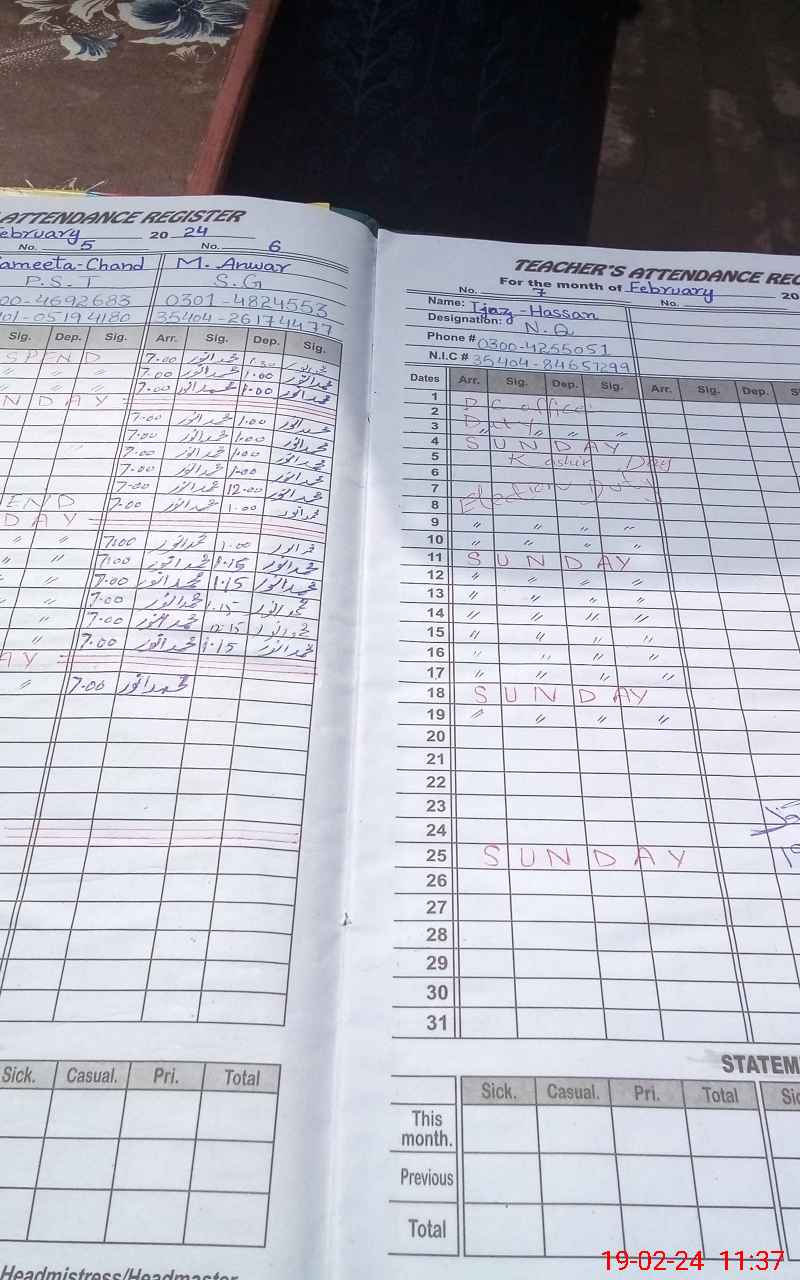 ATTENDANCE REGISTER
ebruary 20 24
No. 5 No. 6
ameeta-Chand M. Anwar
P.S.T S.G
00-4692683 0301-4824553
01-05194180 35404-26174477
Sig. Dep. Sig. Arr. Sig. Dep. Sig.
SPEND 7.00 محمد انور 1.30 محمد انور
〃 〃 7.00 محمد انور 1.00 محمد انور
〃 〃 7.00 محمد انور 1.00 محمد انور
NDAY
7.00 محمد انور 1.00 محمد انور
7.00 محمد انور 1.00 محمد انور
7.00 محمد انور 1.00 محمد انور
7.00 محمد انور 1.00 محمد انور
7.00 محمد انور 12.00 محمد انور
END 7.00 محمد انور 1.00 محمد انور
DAY
〃 〃 7.00 محمد انور 1.00 محمد انور
〃 〃 7.00 محمد انور 1.15 محمد انور
〃 〃 7.00 محمد انور 1.15 محمد انور
〃 〃 7.00 محمد انور 1.15 محمد انور
〃 〃 7.00 محمد انور 12.15 محمد انور
〃 7.00 محمد انور 1.15 محمد انور
AY
〃 7.00 محمد انور
Sick. Casual. Pri. Total
Headmistress/Headmaster
TEACHER'S ATTENDANCE REG
For the month of February 20
No. 7 No.
Name: Ijaz-Hassan
Designation: N.Q
Phone # 0300-4255051
N.I.C # 35404-84657299
Dates Arr. Sig. Dep. Sig. Arr. Sig. Dep. S
1 D.C office
2 Duty
3 〃 〃 〃 〃
4 SUNDAY
5 Kashir Day
6
7 Election Duty
8
9 〃 〃 〃 〃
10 〃 〃 〃 〃
11 SUNDAY
12 〃 〃 〃 〃
13 〃 〃 〃 〃
14 〃 〃 〃 〃
15 〃 〃 〃 〃
16 〃 〃 〃 〃
17 〃 〃 〃 〃
18 SUNDAY
19 〃 〃 〃 〃
20
21
22
23
24
25 SUNDAY
26
27
28
29
30
31
STATEM
Sick. Casual. Pri. Total Sic
This month.
Previous
Total
19-02-24 11:37